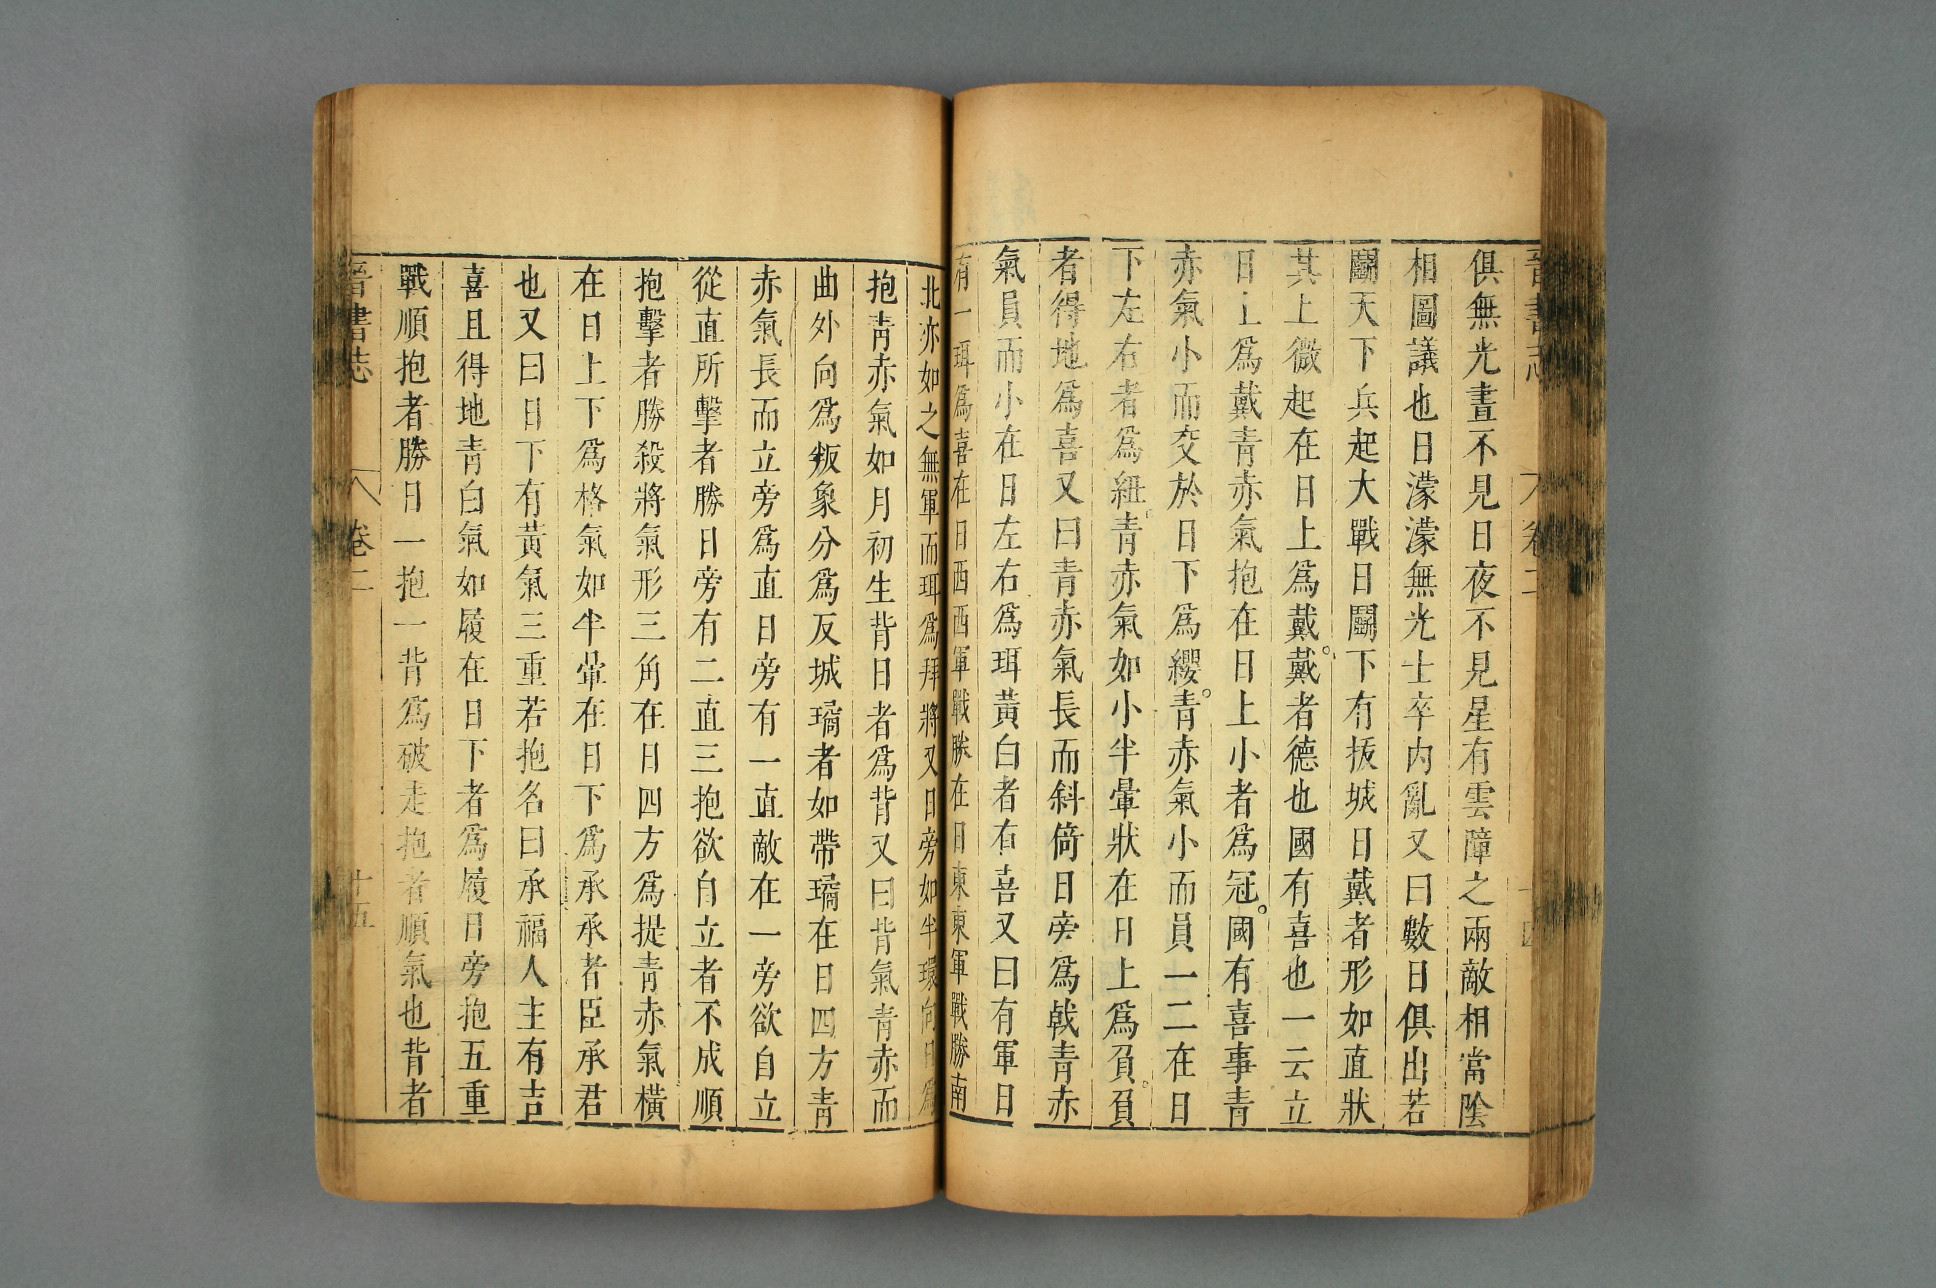 晉書志 卷二 十四
俱無光晝不見日夜不見星有雲障之兩敵相當陰
相圖議也日濛濛無光士卒內亂又曰數日俱出若
鬬天下兵起大戰日鬬下有拔城日戴者形如直狀
其上微起在日上爲戴戴者德也國有喜也一云立
日上爲戴青赤氣抱在日上小者爲冠國有喜事青
赤氣小而交於日下爲纓青赤氣小而員一二在日
下左右者爲紐青赤氣如小半暈狀在日上爲負負
者得地爲喜又曰青赤氣長而斜倚日旁爲戟青赤
氣員而小在日左右爲珥黃白者有喜又曰有軍日
有一珥爲喜在日西西軍戰勝在日東東軍戰勝南
北亦如之無軍而珥爲拜將又日旁如半環向日爲
抱青赤氣如月初生背日者爲背又曰背氣青赤而
曲外向爲叛象分爲反城璚者如帶璚在日四方青
赤氣長而立旁爲直日旁有一直敵在一旁欲自立
從直所擊者勝日旁有二直三抱欲自立者不成順
抱擊者勝殺將氣形三角在日四方爲提青赤氣橫
在日上下爲格氣如半暈在日下爲承承者臣承君
也又曰日下有黃氣三重若抱名曰承福人主有吉
喜且得地青白氣如履在日下者爲履日旁抱五重
戰順抱者勝日一抱一背爲破走抱者順氣也背者
晉書志 卷二 十五